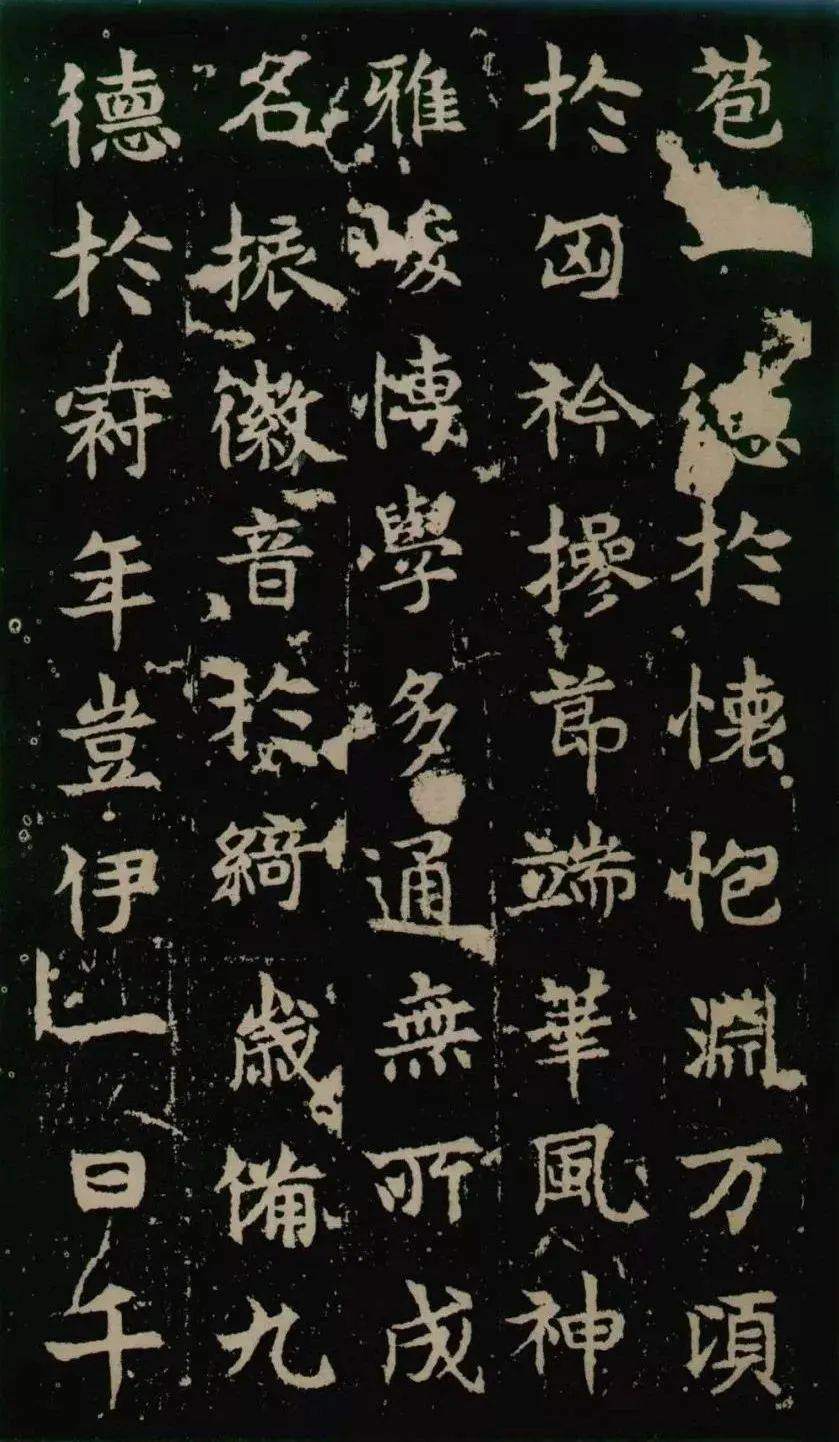 苞一德於懷抱淵万頃
於匈衿操節端華風神
雅峻博學多通無所成
名振徽音於綺歲備九
德於年豈伊一日千